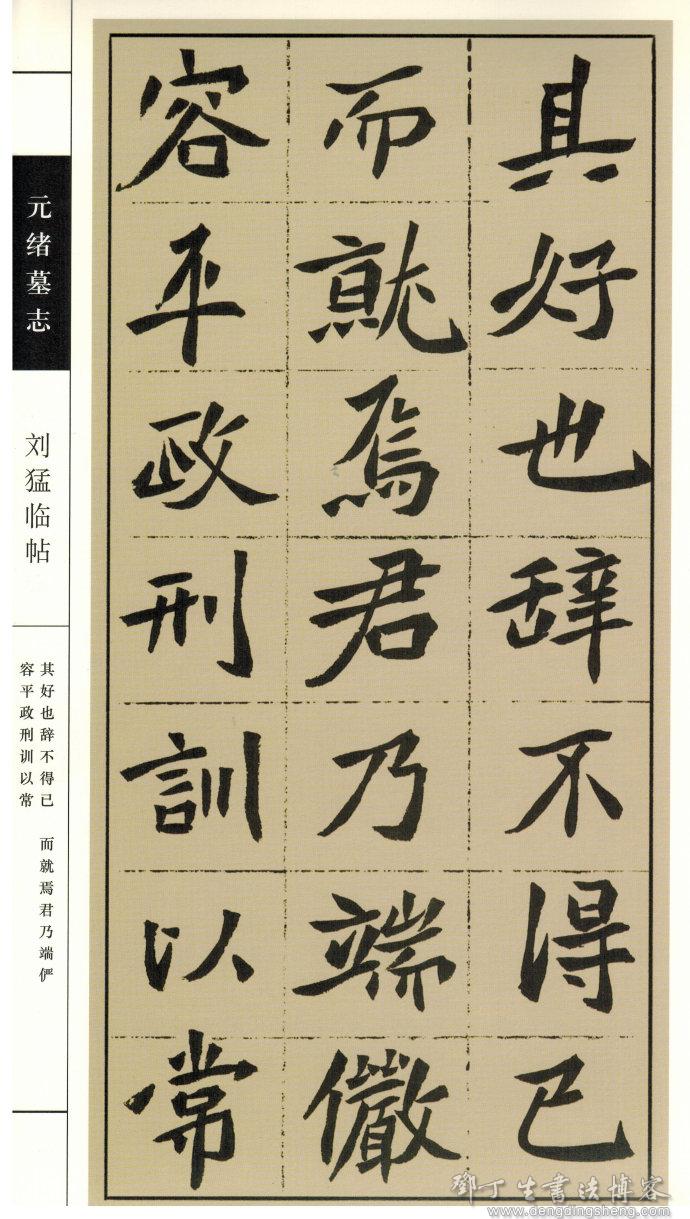 其好也辞不得已
而就焉君乃端儼
容平政刑訓以常
元绪墓志
刘猛临帖
其好也辞不得已 而就焉君乃端俨
容平政刑训以常
鄧丁生書法博客
www.dengdingsheng.com